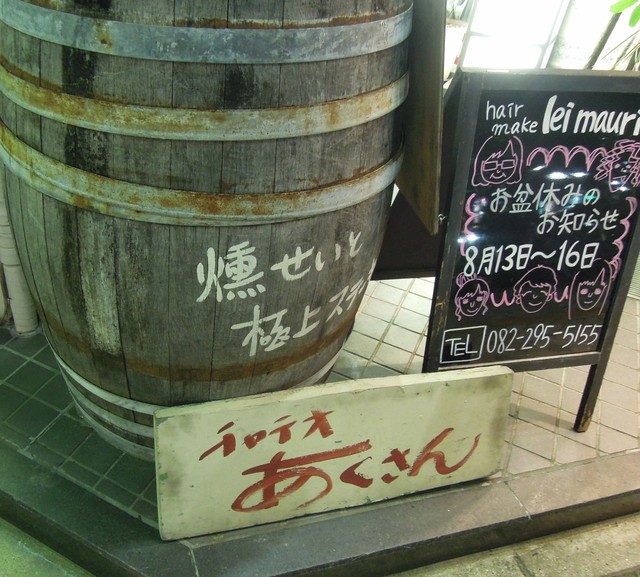 燻せいと
極上ステ
チロテオ
あくさん
hair
make lei mauri
お盆休みの
お知らせ
8月13日～16日
TEL 082-295-5155